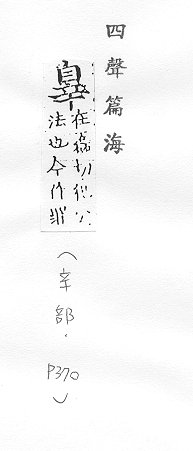 四聲篇海
辠
在猥切犯公
法也今作罪
(辛部.P370)